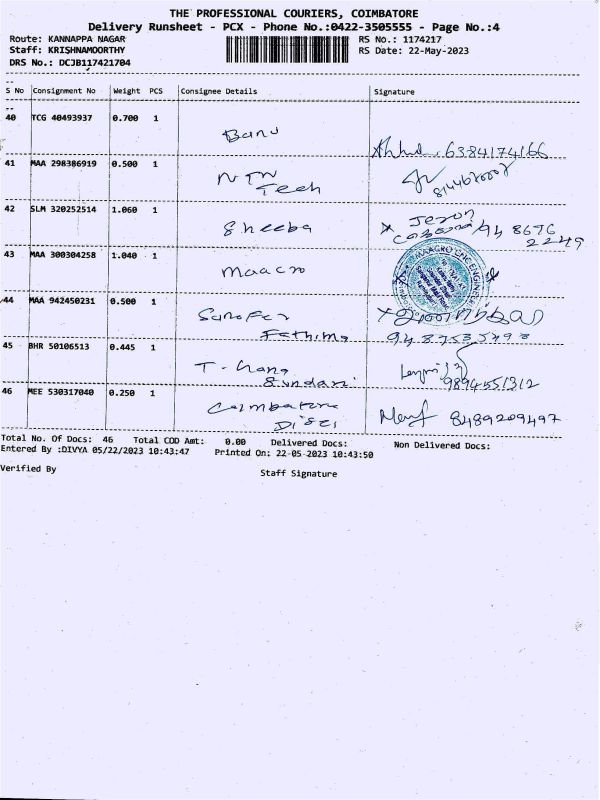 THE PROFESSIONAL COURIERS, COIMBATORE
Delivery Runsheet - PCX - Phone No.:0422-3505555 - Page No.:4
Route: KANNAPPA NAGAR RS No.: 1174217
Staff: KRISHNAMOORTHY RS Date: 22-May-2023
DRS No.: DCJB117421704
S No Consignment No Weight PCS Consignee Details Signature
40 TCG 40493937 0.700 1
Banu
6384174166
41 MAA 298386919 0.500 1
NTW
Tech
42 SLM 320252514 1.060 1
Jeron
Sheeba 94 8676
2249
43 MAA 300304258 1.040 1
Maacro
MAAGRO CNC ENGINEER
44 MAA 942450231 0.500 1
Fathima
45 BHR 50106513 0.445 1
Sundari 9894551312
46 MEE 530317040 0.250 1
Coimbatore
8489209497
Total No. Of Docs: 46 Total COD Amt: 0.00 Delivered Docs: Non Delivered Docs:
Entered By :DIVYA 05/22/2023 10:43:47 Printed On: 22-05-2023 10:43:50
Verified By Staff Signature